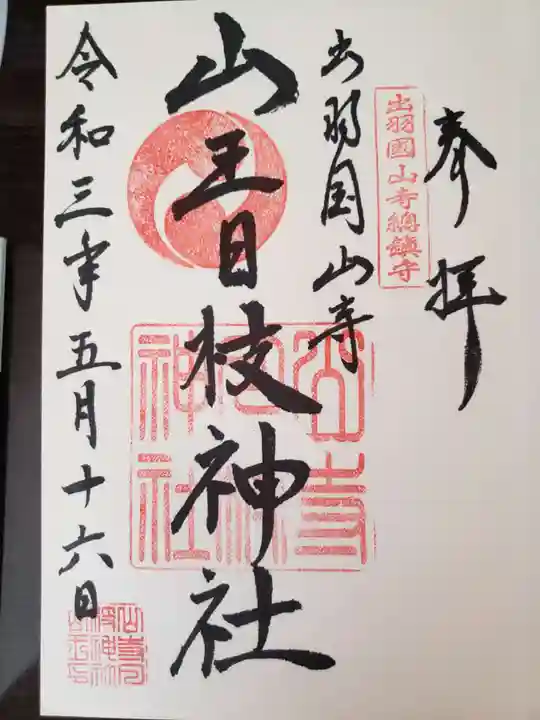 奉拝
出羽國山寺總鎮守
出羽国山寺
山王日枝神社
山寺日枝神社
令和三年五月十六日